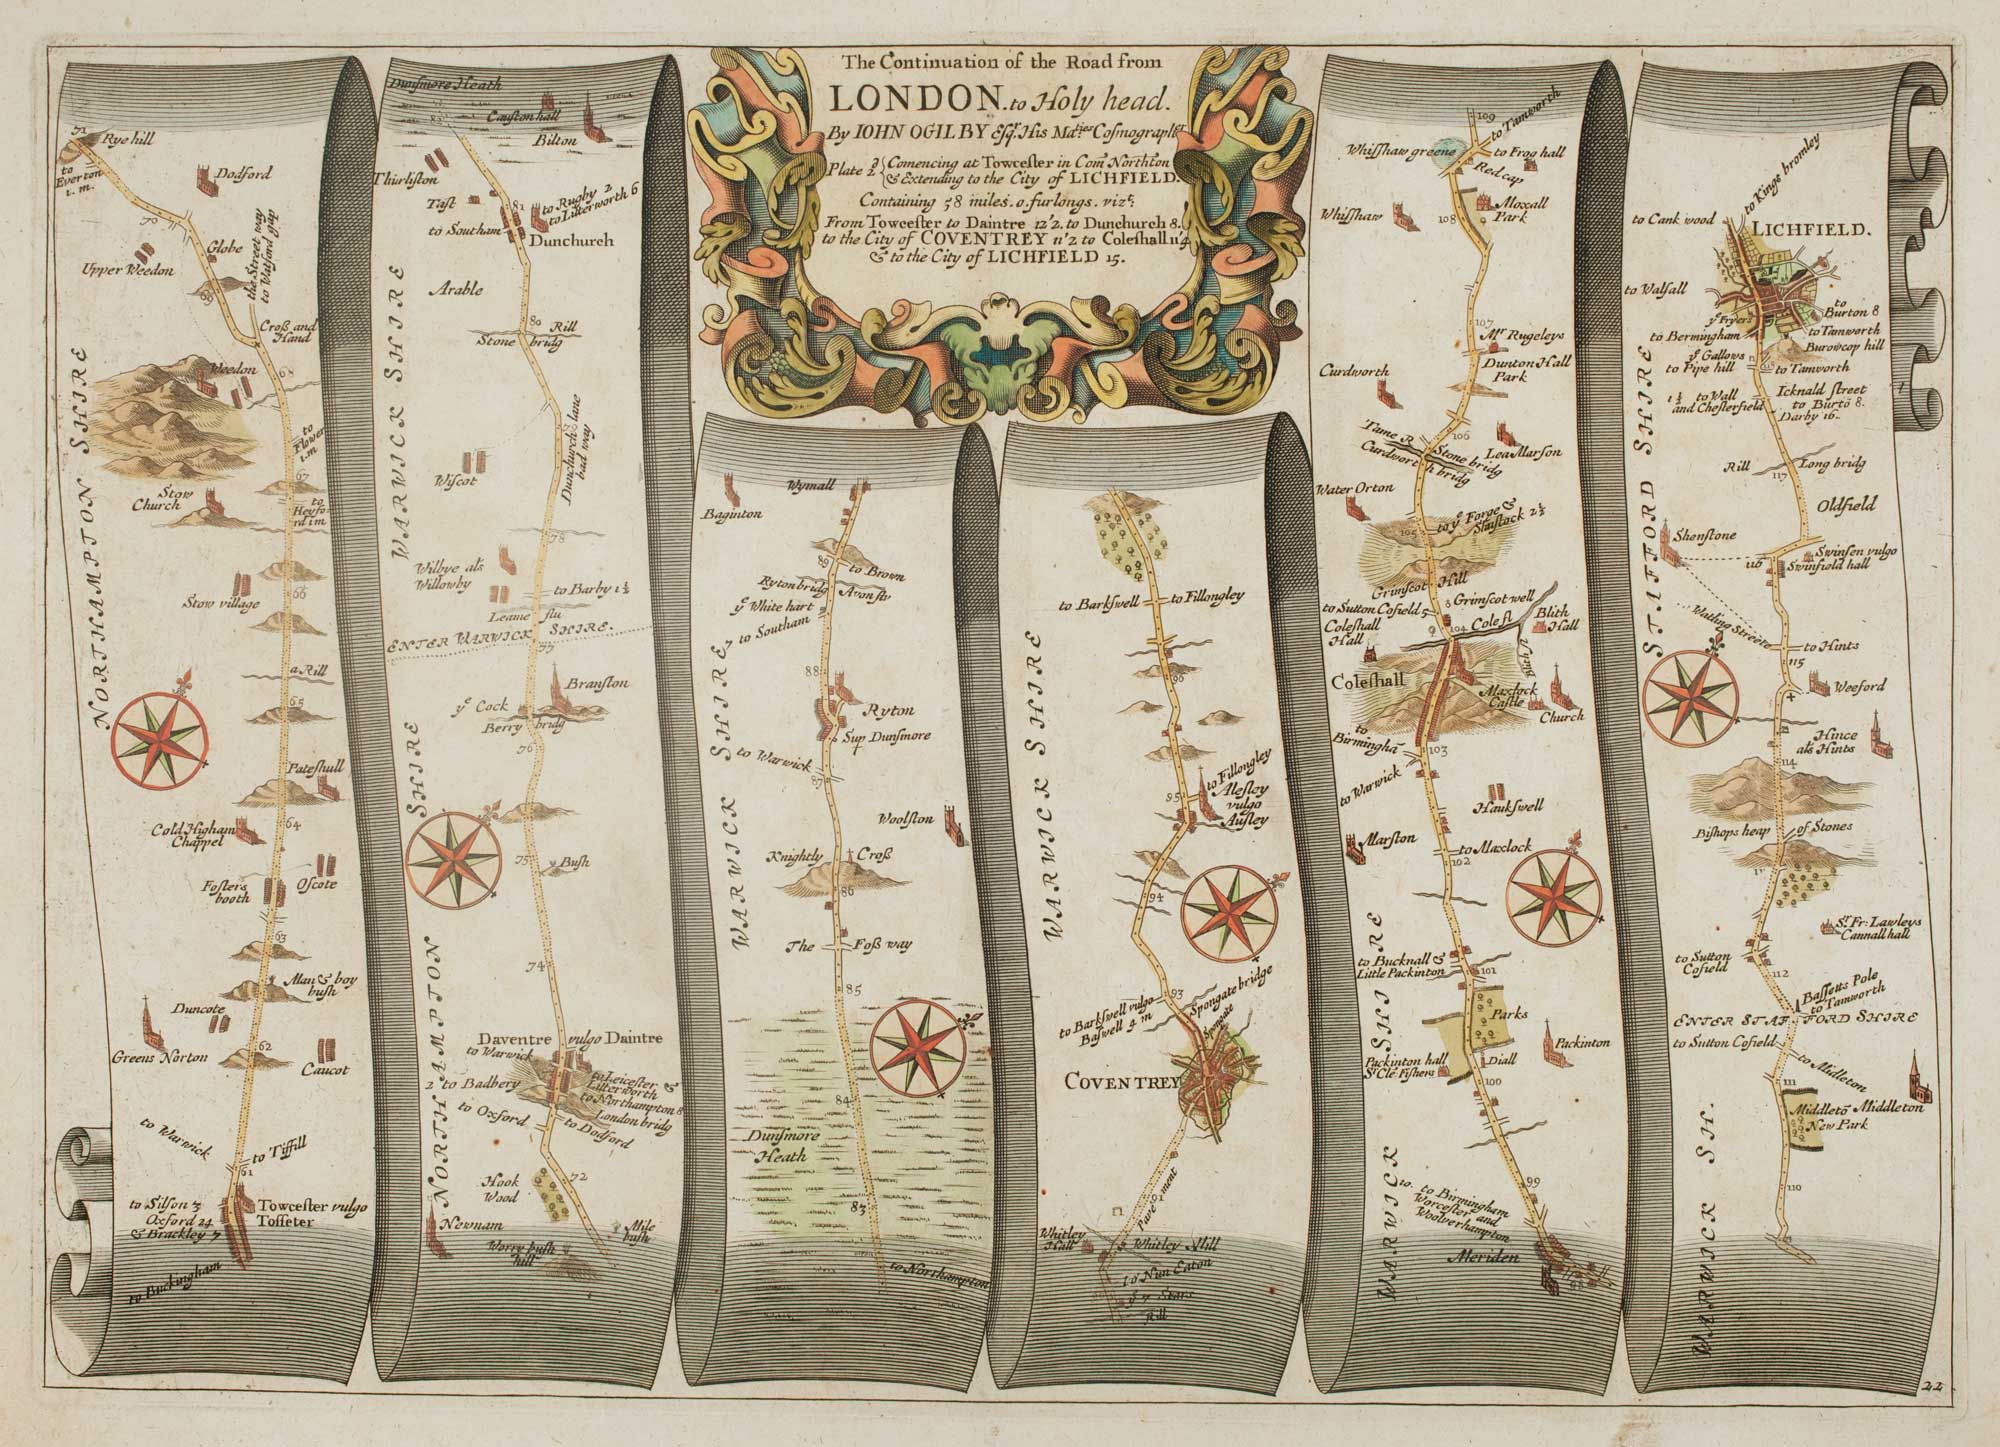 The Continuation of the Road from
LONDON to Holy head.
By IOHN OGILBY Esqr. His Maties Cosmographer
Plate 2d Comencing at Towcester in Com Northton
& Extending to the City of LICHFIELD.
Containing 58 miles. 0. furlongs. vizt;
From Towcester to Daintre 12'2. to Dunchurch 8.
to the City of COVENTREY 11'2 to Coleshall 11'4
& to the City of LICHFIELD 15.
71
Rye hill
to
Everton
1. m.
Dodford
70
the Street way
to Watford gap
Globe
Upper Weedon
69
Croß and
Hand
68
Weedon
NORTHAMPTON SHIRE
to
Flower
1.m.
67
Stow
Church
to
Heyfo
rd 1 m
Stow village
66
a Rill
65
Pateshull
64
Cold Higham
Chappel
Fosters
booth
Oscote
63
Alan & boy
bush
Duncote
Greens Norton
62
Caucot
to Warwick
to Tiffill
61
to Silson 3
Oxford 24
& Brackley 7
Towcester vulgo
Tosseter
to Buckingham
Dunsmore Heath
82
Causton hall
Bilton
Thirlston
Tast
81
to Rugby 2
to Lutterworth 6
to Southam
Dunchurch
WARWICK SHIRE
Arable
80
Rill
Stone bridg
79
Dunchurch lane
bad way
Wiscot
78
Wilbye als
Willowby
to Barby 1½
Leame flu
ENTER WARWICK SHIRE.
77
ye Cock
Branston
Berry bridg
76
NORTHAMPTON SHIRE
75
Bush
74
Daventre vulgo Daintre
to Warwick
2 to Badbery
to Leicester &
Lutterworth
to Northampton 8
London bridg
to Oxford
to Dodford
72
Hook
Wood
Newnam
Mile
bush
Worry bush
hill
Wymall
Baginton
89
to Brown
Ryton bridg
Avon flu
ye White hart
to Southam
WARWICK SHIRE
88
Ryton
Sup Dunsmore
to Warwick
87
Woolston
Knightly Croß
86
WARWICK
The Foß way
85
84
Dunsmore
Heath
83
to Northampton
to Barkswell
to Fillongley
WARWICK SHIRE
96
to Fillongley
Alesley
vulgo
Ausley
95
94
93
to Barkswell vulgo
Baswell 4 m
Spongate bridge
Spongate
COVENTREY
Pavement
Whitley
Hall
Whitley Mill
to Nun Eaton
ye 7 Stars
Rill
109
to Tamworth
Whisshaw greene
to Frog hall
Red cap
Whisshaw
108
Moxall
Park
107
Mr. Rugeleys
Curdworth
Dunton Hall
Park
106
Tame R
Stone bridg
Curdworth bridg
Lea Marson
Water Orton
105
to ye Forge &
Shustock 2½
Grimscot Hill
to Sutton Cofield 5
Grimscot well
Coleshall
Hall
104
Cole fl
Blith
Hall
Blyth fl
Coleshall
Maxlock
Castle
Church
to
Birmingha
103
to Warwick
Haukswell
Marston
to Maxlock
102
WARWICK SHIRE
to Bucknall &
Little Packinton
101
Parks
Packinton hall
Sr Cle: Fishers
Diall
Packinton
100
99
10. to Birmingham
Worcester and
Woolverhampton
Meriden
98
to Kings bromley
to Cank wood
LICHFIELD.
to Walsall
ye Fryers
to
Burton 8
to Tamworth
to Bermingham
Burowcop hill
ye Gallows
to Pipe hill
118
to Tamworth
1½ to Wall
and Chesterfield
Icknald street
to Burto 8.
Darby 16.
STAFFORD SHIRE
Rill
Long bridg
117
Oldfield
Shenstone
116
Swinsen vulgo
Swinfield hall
Watling Street
to Hints
115
Weeford
Hince
als Hints
114
Bishops heap of Stones
Sr. Fr: Lawleys
Cannall hall
to Sutton
Cofield
112
Bassetts Pole
to
Tamworth
ENTER STAFFORD SHIRE
to Sutton Cofield
to Midleton
111
Middleto
New Park
Middleton
WARWICK SH.
110
22